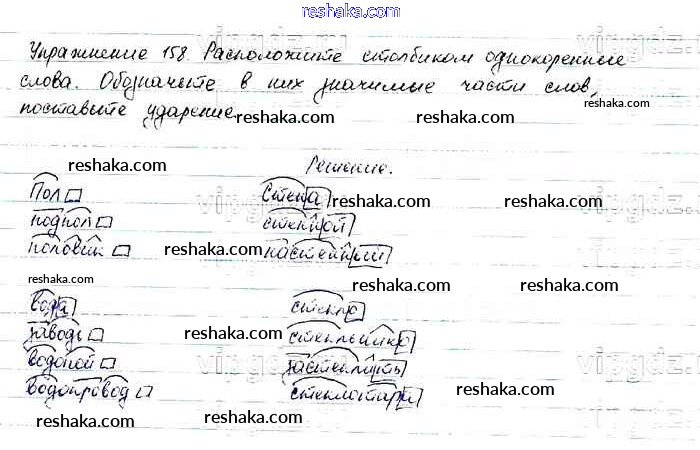 reshaka.com
Упражнение 158. Расположите столбиком однокоренные
слова. Обозначьте в них значимые части слов,
поставьте ударение.
reshaka.com reshaka.com
reshaka.com Решение.
Пол стена reshaka.com reshaka.com
подпол стенной
половик reshaka.com настенный reshaka.com
reshaka.com
вода стекло reshaka.com
заводь reshaka.com стекольнико reshaka.com
водопой застеклить
водопровод стеклотара reshaka.com
reshaka.com reshaka.com reshaka.com
vipgdz.ru